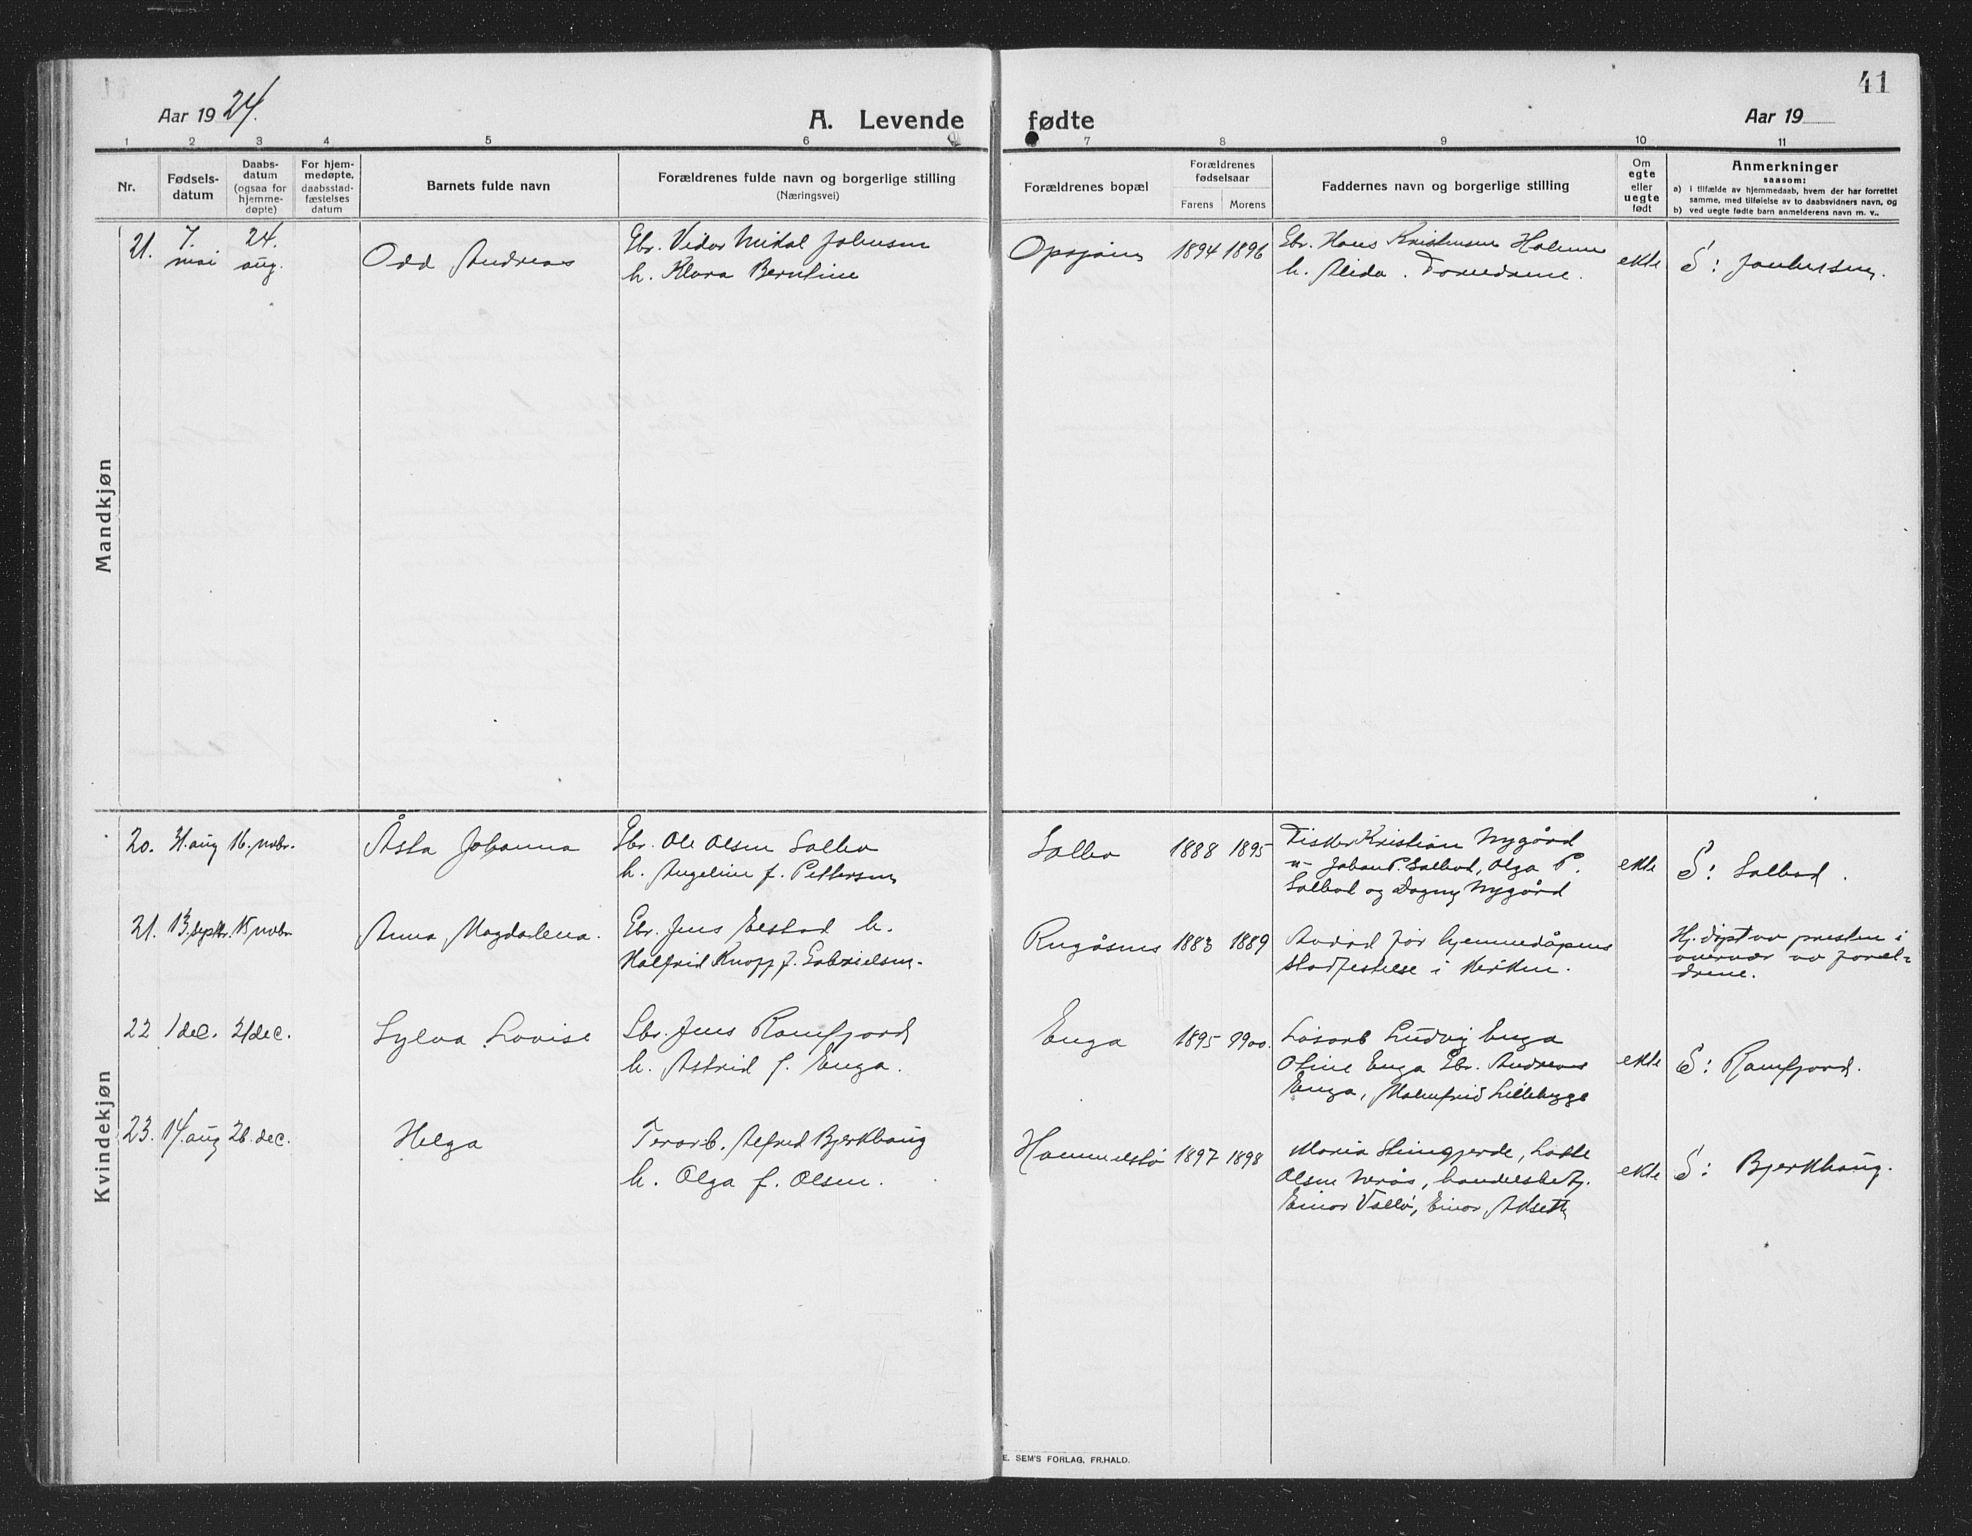 41
Aar 1924.
A. Levende fødte
Aar 19
1 2 3 4 5 6 7 8 9 10 11
Nr.
Fødsels-
datum
Daabs-
datum
(ogsaa for
hjemme-
døpte)
For hjem-
medøpte,
daabsstad-
fæstelses
datum
Barnets fulde navn
Forældrenes fulde navn og borgerlige stilling
(Næringsvei)
Forældrenes bopæl
Forældrenes
fødselsaar
Farens Morens
Faddernes navn og borgerlige stilling
Om
egte
eller
uegte
født
Anmerkninger
saasom:
a) i tilfælde av hjemmedaab, hvem der har forrettet
samme, med tilføielse av to daabsvidners navn, og
b) ved uegte fødte barn anmelderens navn m. v..
Mandkjøn
21.
7.
mai
24.
aug.
Odd Andreas
Gbr. Vidar Mikal Johnsen
h. Klara Berntine
Opsjøin
1894 1896
Gbr. Hans Kristensen Holmen
h. Alida.
ekte
S:
Kvindekjøn
20. 31. aug 16. novbr.
Åsta Johanna
Gbr. Ole Olsen Solbo
h. Angelin f. Pettersen
Solbo
1888 1895
Fisker Kristian Nygård
"- Johan P. Solbod, Olga P.
Solbod og Dagny Nygård
ekte
S: Solbod.
21. 13. septbr. 15 novbr
Anna Magdalena.
Gbr. Jens Eestad h.
Halfrid Knopp f. Gabrielsen.
Rugåsnes
1883 1889
Avdød før hjemmedåpens
stadfestelse i kirken.
Hj. døpt av presten i
overvær av foræl-
drene.
22 1 dec. 21 dec.
Sylva Lovise
Gbr. Jens Ramfjord
h. Astrid f. Enga.
Enga
1895 1900.
Løsarb Ludvig Enga
Oline Enga Gbr. Andreas
Enga, Malmfrid Lillebygge
ekte
S: Ramfjord.
23. 14. aug 26. dec.
Helga
Alfred Bjerkhaug
h. Olga f. Olsen.
Hammelstø
1897 1898
Maria Steingjerde, Lotte
Olsen Nerås, handelsbetj.
Einar Vallø, Einar Akseth
ekte
S: Bjerkhaug.
E. SEM'S FORLAG, FR.HALD.